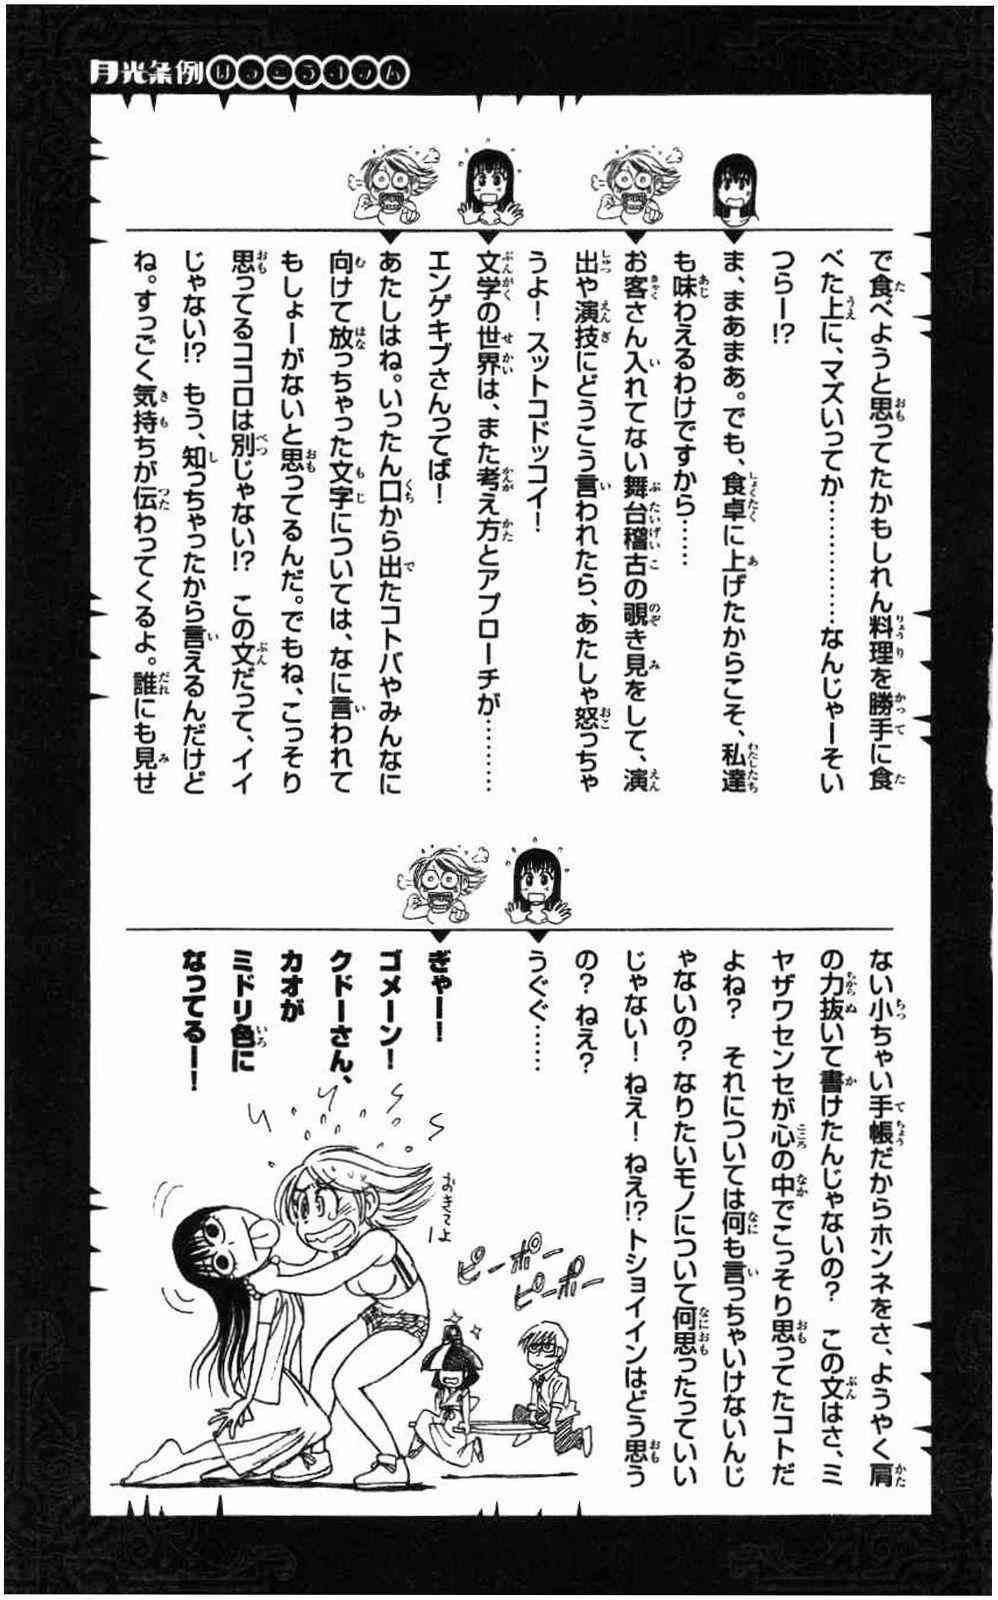 月光条例はっこうコラム
で食べようと思ってたかもしれん料理を勝手に食
べた上に、マズいってか…………なんじゃーそい
つらー!?
ま、まあまあ。でも、食卓に上げたからこそ、私達
も味わえるわけですから……
お客さん入れてない舞台稽古の覗き見をして、演
出や演技にどうこう言われたら、あたしゃ怒っちゃ
うよ!スットコドッコイ!
文学の世界は、また考え方とアプローチが…………
エンゲキブさんってば!
あたしはね。いったん口から出たコトバやみんなに
向けて放っちゃった文字については、なに言われて
もしょーがないと思ってるんだ。でもね、こっそり
思ってるココロは別じゃない!? この文だって、イイ
じゃない!? もう、知っちゃったから言えるんだけど
ね。すっごく気持ちが伝わってくるよ。誰にも見せ
ない小ちゃい手帳だからホンネをさ、ようやく肩
の力抜いて書けたんじゃないの? この文はさ、ミ
ヤザワセンセが心の中でこっそり思ってたコトだ
よね? それについては何も言っちゃいけないんじ
ゃないの? なりたいモノについて何思ったっていい
じゃない! ねえ! ねえ!? トショイインはどう思う
の? ねえ?
うぐぐ……
ぎゃー!
ゴメーン!
クドーさん、
カオが
ミドリ色に
なってるー!
おきてよー
ピーポー
ピーポー